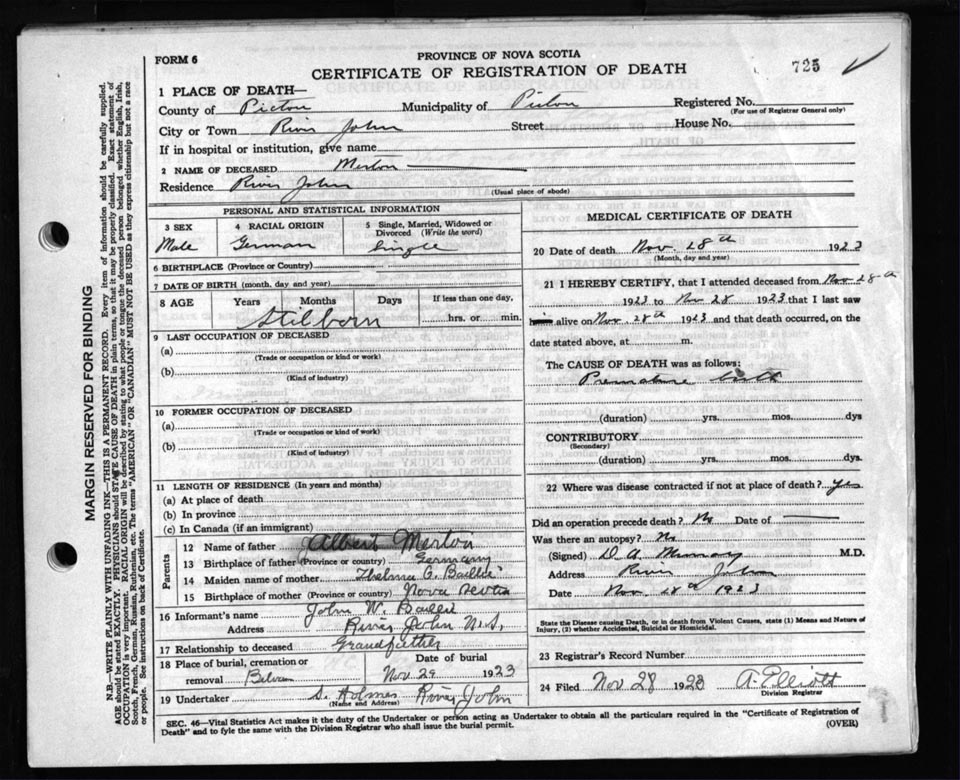 FORM 6
PROVINCE OF NOVA SCOTIA
CERTIFICATE OF REGISTRATION OF DEATH
725
1 PLACE OF DEATH—
County of Pictou Municipality of Pictou Registered No.
(For use of Registrar General only)
City or Town River John Street House No.
If in hospital or institution, give name
2 NAME OF DECEASED Merlon
Residence River John
(Usual place of abode)
PERSONAL AND STATISTICAL INFORMATION
3 SEX 4 RACIAL ORIGIN 5 Single, Married, Widowed or Divorced (Write the word)
Male German Single
6 BIRTHPLACE (Province or Country)
7 DATE OF BIRTH (month, day and year)
8 AGE Years Months Days If less than one day,
Stilborn hrs. or min.
9 LAST OCCUPATION OF DECEASED
(a)
(Trade or occupation or kind or work)
(b)
(Kind of industry)
10 FORMER OCCUPATION OF DECEASED
(a)
(Trade or occupation or kind of work)
(b)
(Kind of industry)
11 LENGTH OF RESIDENCE (In years and months)
(a) At place of death
(b) In province
(c) In Canada (if an immigrant)
Parents
12 Name of father Albert Merlon
13 Birthplace of father (Province or country) Germany
14 Maiden name of mother Thelma C. Baillie
15 Birthplace of mother (Province or country) Nova Scotia
16 Informant's name John W. Baillie
Address River John N.S.
17 Relationship to deceased Grandfather
18 Place of burial, cremation or removal Date of burial
Nov 29 1923
19 Undertaker S. Holmes River John
(Name and Address)
MEDICAL CERTIFICATE OF DEATH
20 Date of death Nov. 28th 1923
(Month, day and year)
21 I HEREBY CERTIFY, that I attended deceased from Nov 28th
1923 to Nov 28 1923 that I last saw
him alive on Nov. 28th 1923 and that death occurred, on
date stated above, at m.
The CAUSE OF DEATH was as follows:
Premature birth
(duration) yrs. mos. dys
CONTRIBUTORY
(Secondary)
(duration) yrs. mos. dys.
22 Where was disease contracted if not at place of death? Yes
Did an operation precede death? No Date of —
Was there an autopsy? No
(Signed) D. A. Murray M.D.
Address River John
Date Nov. 28th 1923
State the Disease causing Death, or in death from Violent Causes, state (1) Means and Nature of Injury, (2) whether Accidental, Suicidal or Homicidal.
23 Registrar's Record Number
24 Filed Nov 28 1923 A. Elliott
Division Registrar
SEC. 46—Vital Statistics Act makes it the duty of the Undertaker or person acting as Undertaker to obtain all the particulars required in the "Certificate of Registration of
Death" and to fyle the same with the Division Registrar who shall issue the burial permit. (OVER)
MARGIN RESERVED FOR BINDING
N.B.—WRITE PLAINLY WITH UNFADING INK—THIS IS A PERMANENT RECORD. Every item of information should be carefully supplied.
AGE should be stated EXACTLY. PHYSICIANS should STATE CAUSE OF DEATH in plain terms, so that it may be properly classified. Exact statement of
OCCUPATION is very important. RACIAL ORIGIN will be described by stating to what people or tongue the deceased person belonged whether English, Irish,
Scotch, French, German, Russian, Ruthenian, etc. The terms "AMERICAN" or "CANADIAN" MUST NOT BE USED as they express citizenship but not a race
or people. See instructions on back of Certificate.